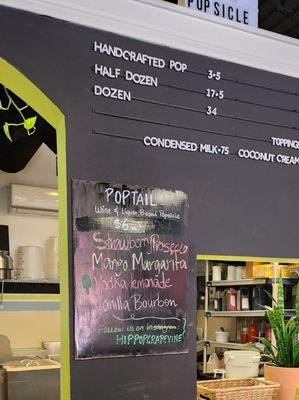 POPSICLE
HANDCRAFTED POP 3•5
HALF DOZEN 17•5
DOZEN 34
TOPPINGS
CONDENSED MILK •75 COCONUT CREAM
POPTAIL
Wine & Liquor Based Popsicle
$6
Strawberry Prosecco
Mango Margarita
Vodka lemonade
Vanilla Bourbon
Follow us on Instagram:
HIPPOPGRAPEVINE